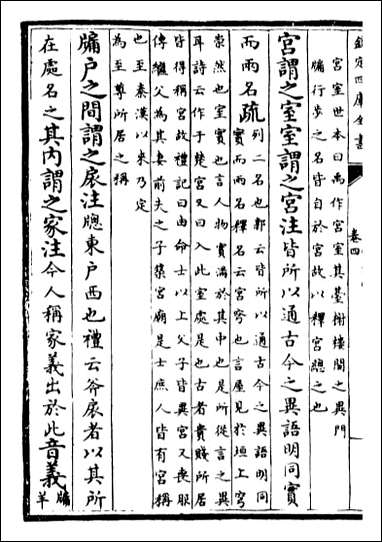 欽定四庫全書
卷四
宮室世本曰禹作宮室其臺榭樓閣之異門
牖行步之名皆自於宮故以釋宮總之也
宮謂之室室謂之宮注皆所以通古今之異語明同實
而兩名疏
列二名也郭云皆所以通古今之異語明同
實而兩名釋名云宮穹也言屋見於垣上穹
崇然也室實也言人物實滿於其中也是所從言之異
耳詩云作于楚宮又曰入此室處是也古者貴賤所居
皆得稱宮故禮記曰由命士以上父子皆異宮又喪服
傳繼父為其妻前夫之子築宮廟是士庶人皆有宮稱
也至秦漢以來乃定
為至尊所居之稱
牖戶之間謂之扆注牕東戶西也禮云斧扆者以其所
在處名之其內謂之家注今人稱家義出於此音義
牖
羊